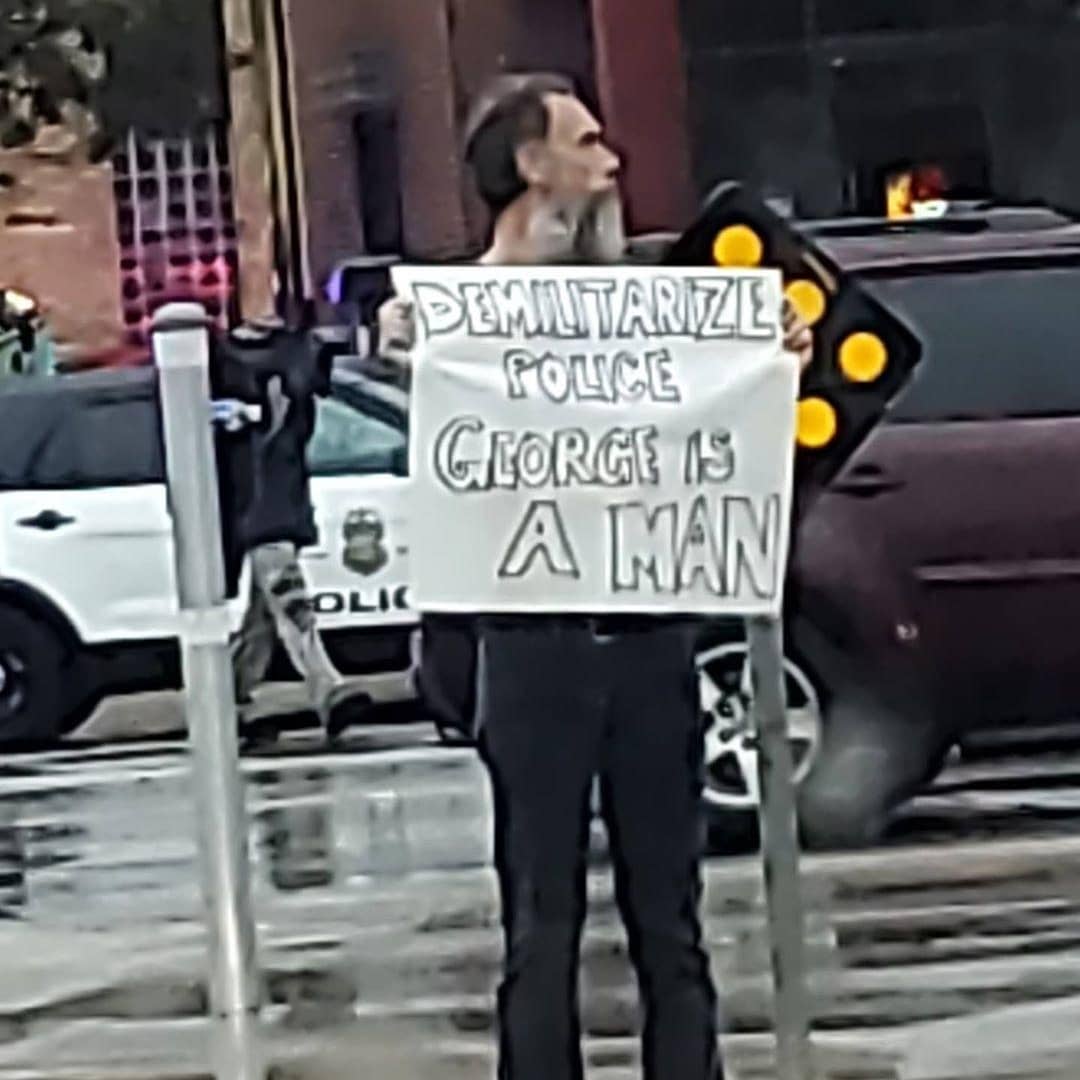 DEMILITARIZE
POLICE
GEORGE IS
A MAN
OLIC